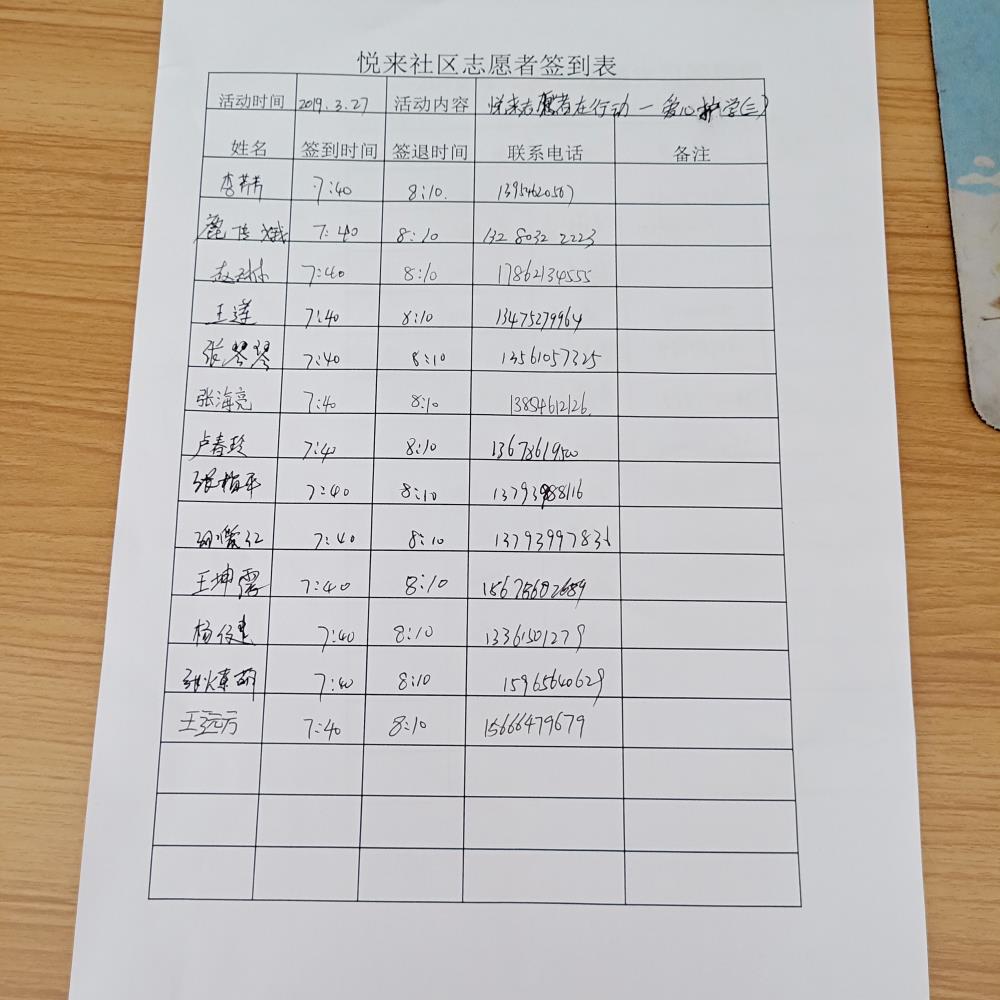 悦来社区志愿者签到表
活动时间 2019.3.27 活动内容 悦来志愿者在行动一爱心护学(三)
姓名 签到时间 签退时间 联系电话 备注
7:40 8:10. 13954620567
7:40 8:10 132 8032 2223
7:40 8:10 17862134555
王莲 7:40 8:10 13475279964
张琴琴 7:40 8:10 13561057325
张海亮 7:40 8:10 13854612126.
卢春玲 7:40 8:10 13678619500
张梅平 7:40 8:10 13793988116
7:40 8:10 13793997836
王坤霞 7:40 8:10
杨俊建 7:40 8:10 13361501279
7:40 8:10 15965640629
王远方 7:40 8:10 15666479679